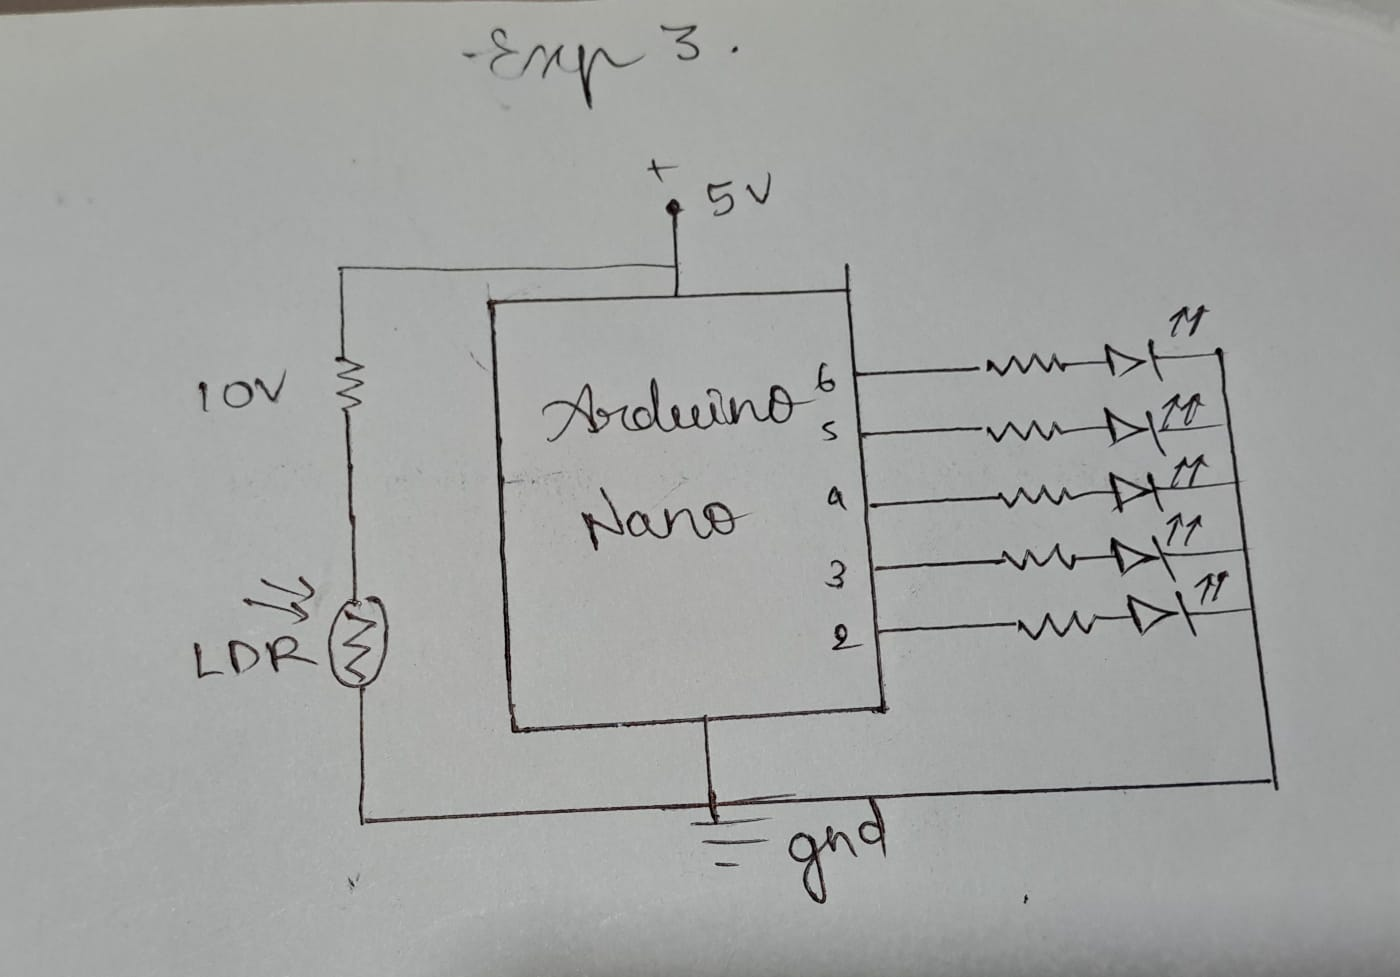 Exp 3.
+
5V
10V
Arduino
Nano
6
5
4
3
2
LDR
gnd